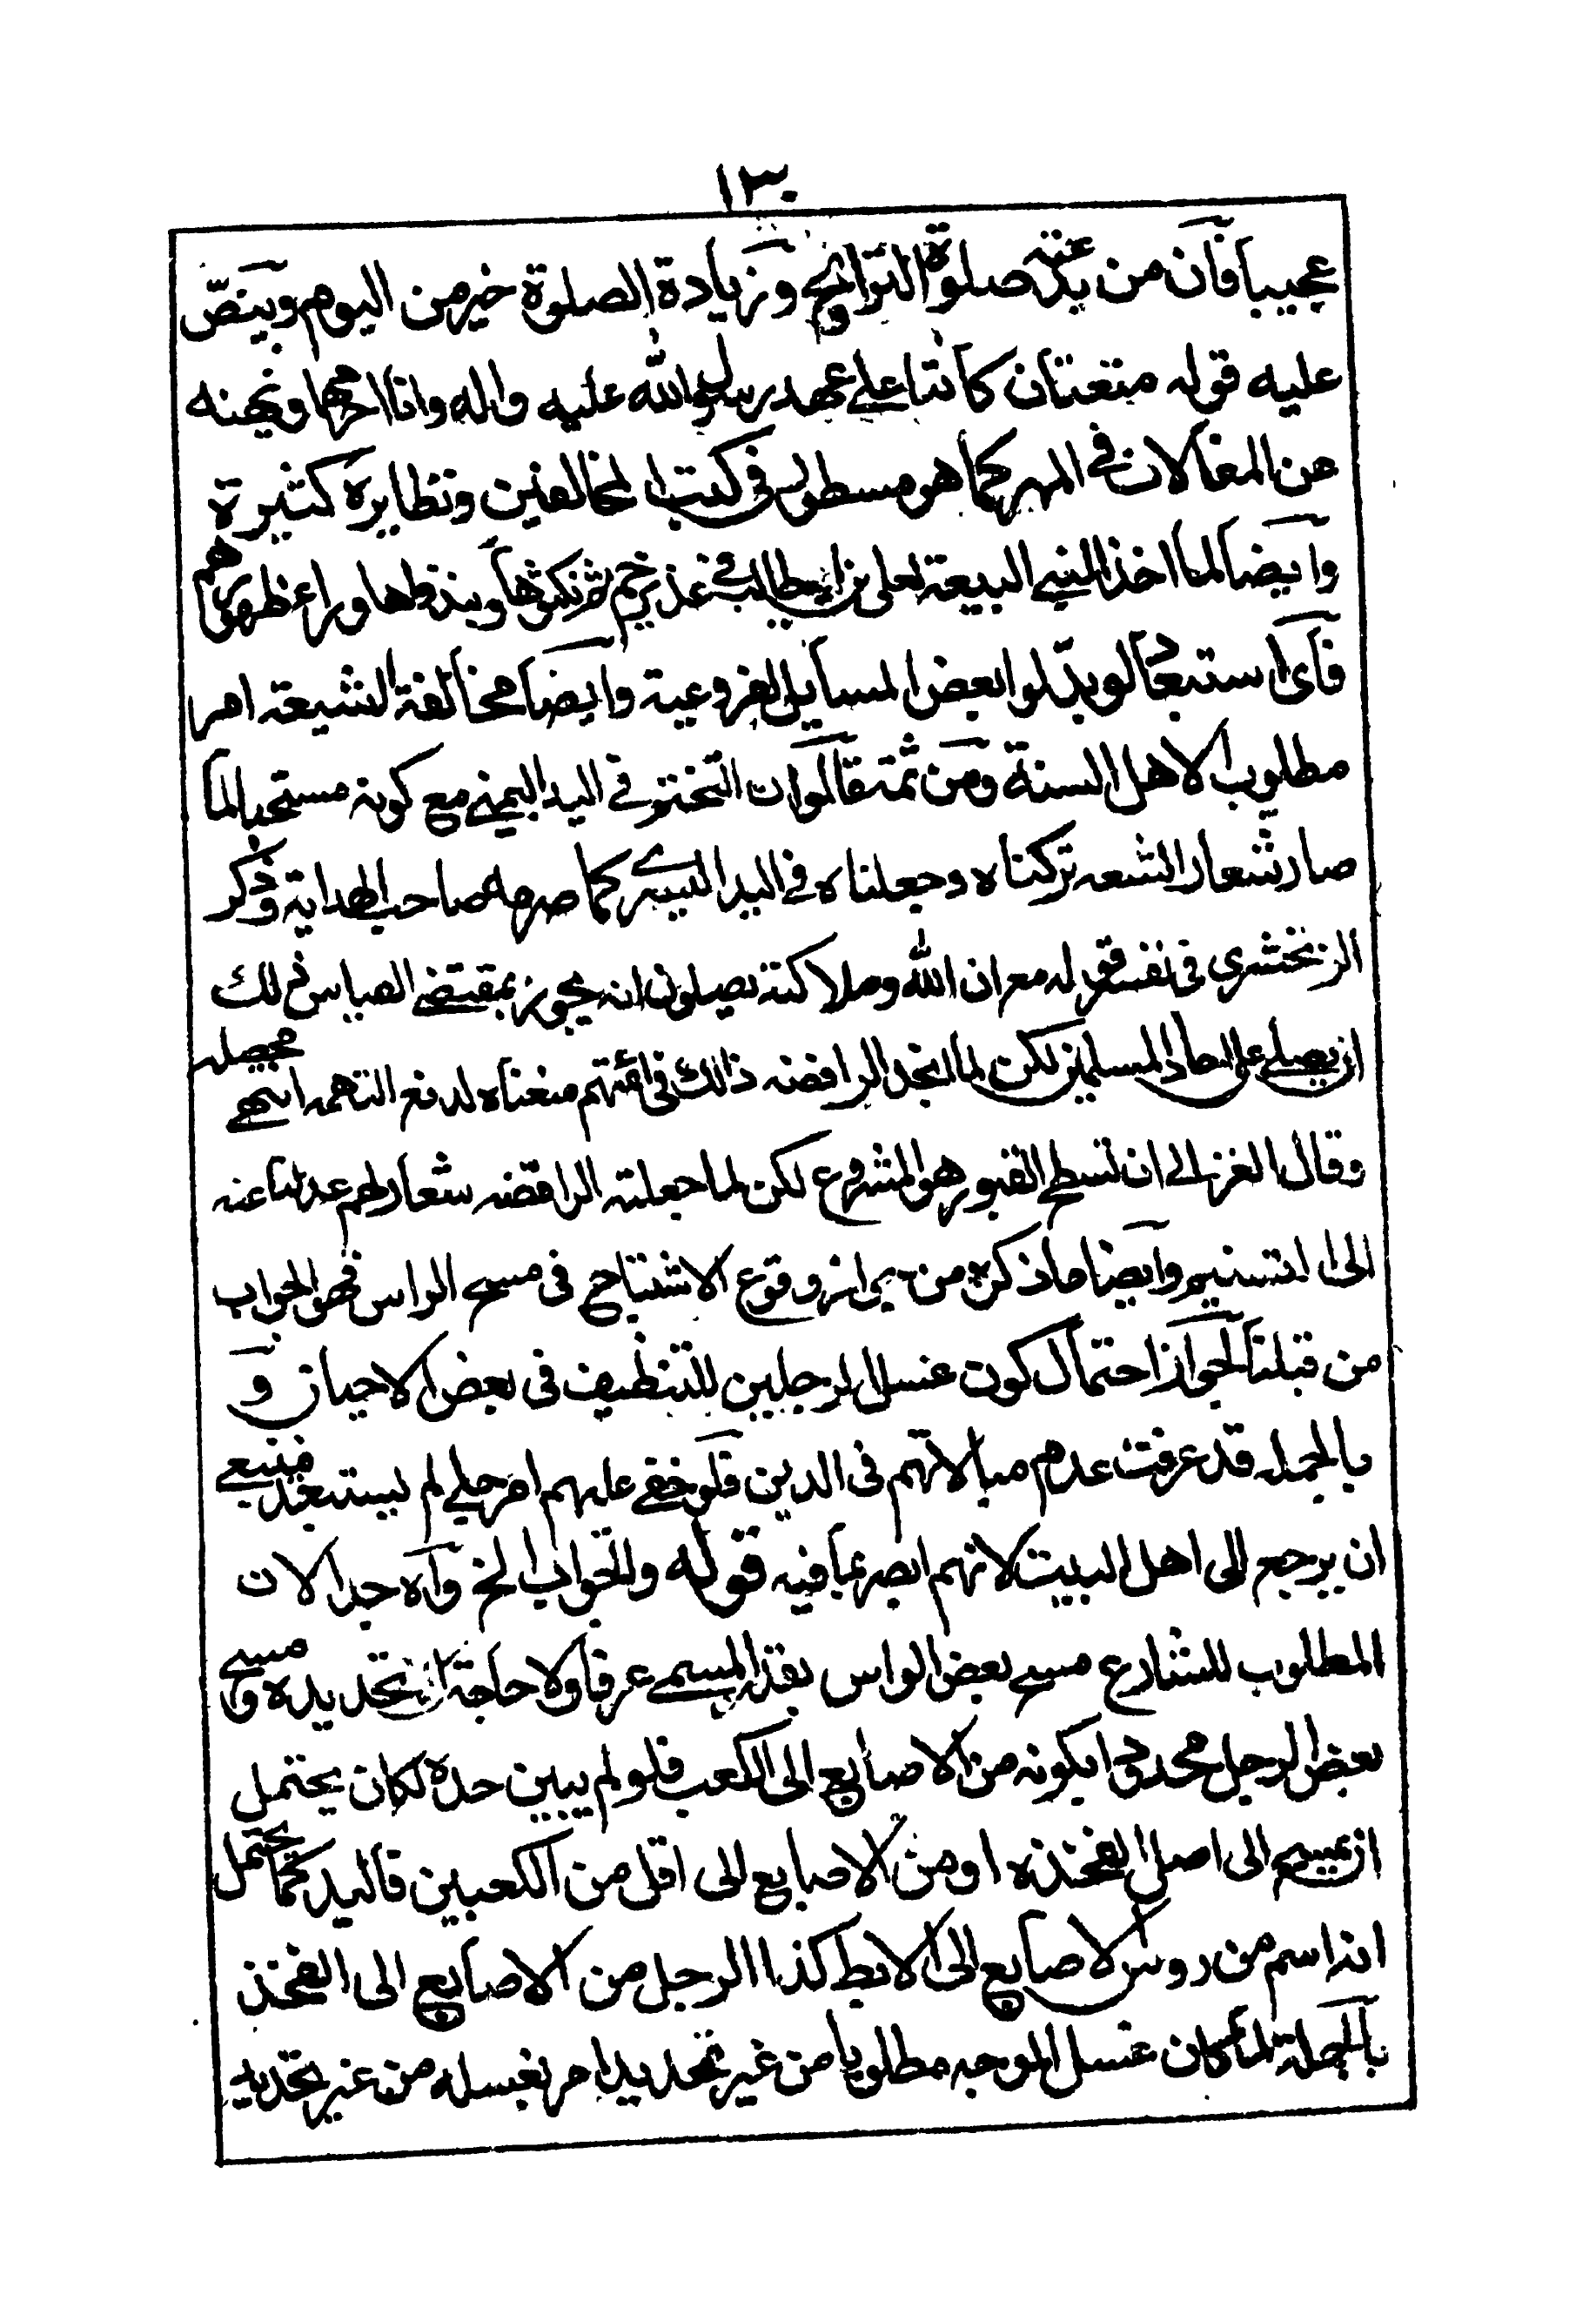 ١٣٠
عجيبا فان من بدعته صلوة التراويح وزيادة الصلوة خير من اليوم وينصّ
عليه قوله متعتان كانتا على عهد رسول الله عليه واله وانا احرمهما ونهيه
عن المغالات في المهر كما هو مسطور في كتب المخالفين ونظايره كثيرة
وايضا لما اخذ النبي البيعة لعلي بن ابيطالب في غدير خم ثم نكثوها ونبذوها وراء ظهورهم
فاى استبعاد لو بدّلوا بعض المسايل الفروعية وايضا مخالفة الشيعة امر
مطلوب لاهل السنة ومن ثمة قالوا ان التختم في اليد اليمنى مع كونه مستحبا لما
صار شعار الشعه تركناه وجعلناه في اليد اليسرى كما صرح به صاحب الهداية وذكر
الزمخشرى في تفسير قوله مع ان الله وملائكته يصلون انه يجوز بمقتضى القياس ذلك
ان يصلى على احاد المسلمين لكن لما اتخذ الرافضه ذلك في ائمتهم منعناه لدفع التهمه انتهى محصله
وقال الغزالى ان تسطح القبور هو المشروع لكن لما جعلته الرافضه شعارا لهم عدلنا عنه
الى التسنيم وايضا ما ذكره من وقوع الاشتباح في مسح الراس فهو الجواب
من قبلنا لجواز احتمال كون غسل الرجلين للتنظيف في بعض الاحيان و
بالجمله قد عرفت عدم مبالاتهم في الدين فلو خفى عليهم امر جلى لم يستبعد فينبغى
ان يرجع الى اهل البيت لانهم ابصر بما فيه قوله والجواب الخ واه جدا لان
المطلوب للشارع مسح بعض الراس بقدر المسمى عرفا ولا حاجة الى تحديده ومسح
بعض الرجل محدودا بكونه من الاصابع الى الكعب فلو لم يبين حده لكان يحتمل
ان يمسح الى اصل الفخذه او من الاصابع الى اقل من الكعبين فاليد كما يحتمل
انه اسم من روس الاصابع الى الابط كذا الرجل من الاصابع الى الفخذ
بالجملة لما كان غسل الوجه مطلوبا من غير تحديد امر بغسله من غير تحديد